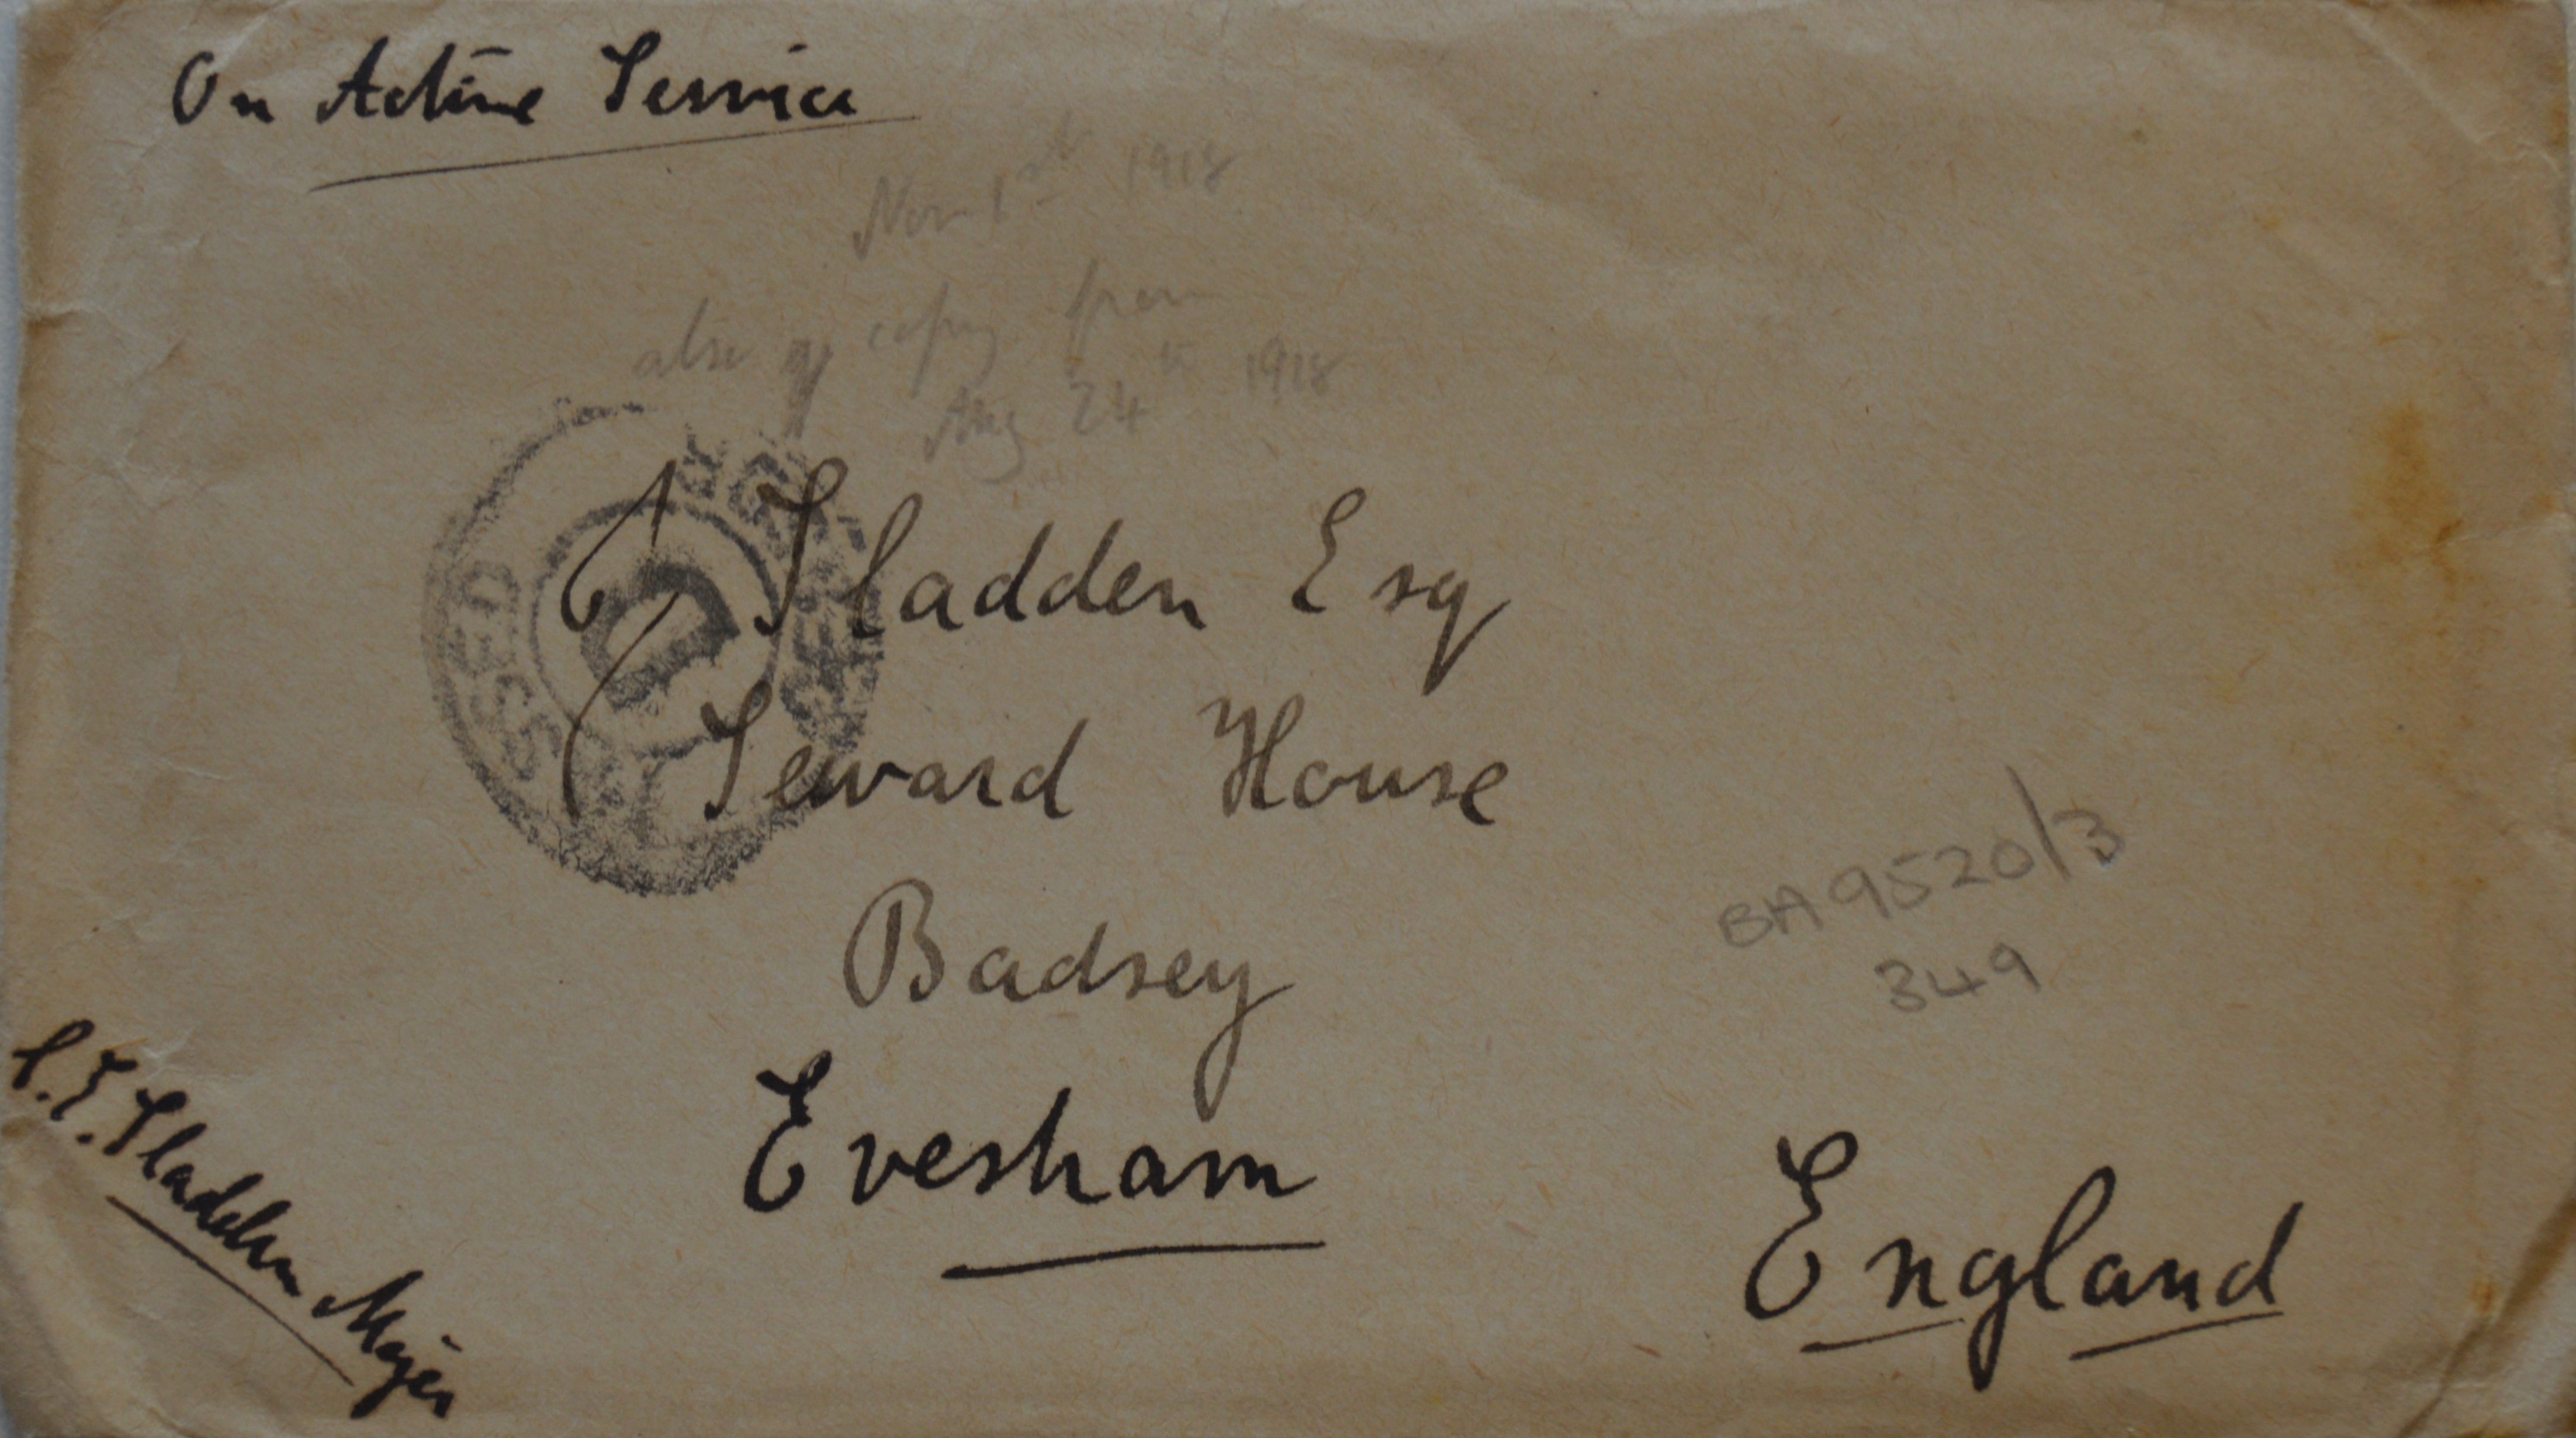 On Active Service
Nov 1st 1918
also copy from
Aug 24th 1918
J Sladden Esq
Seward House
Badsey
Evesham
England
BA 9520/3
349
C.E. Sladden Major
PASSED